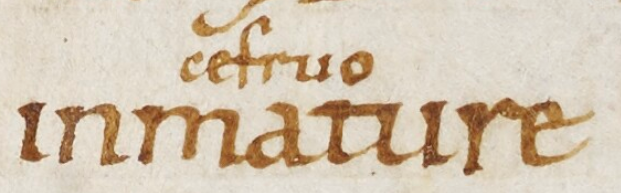 cefruo
inmature